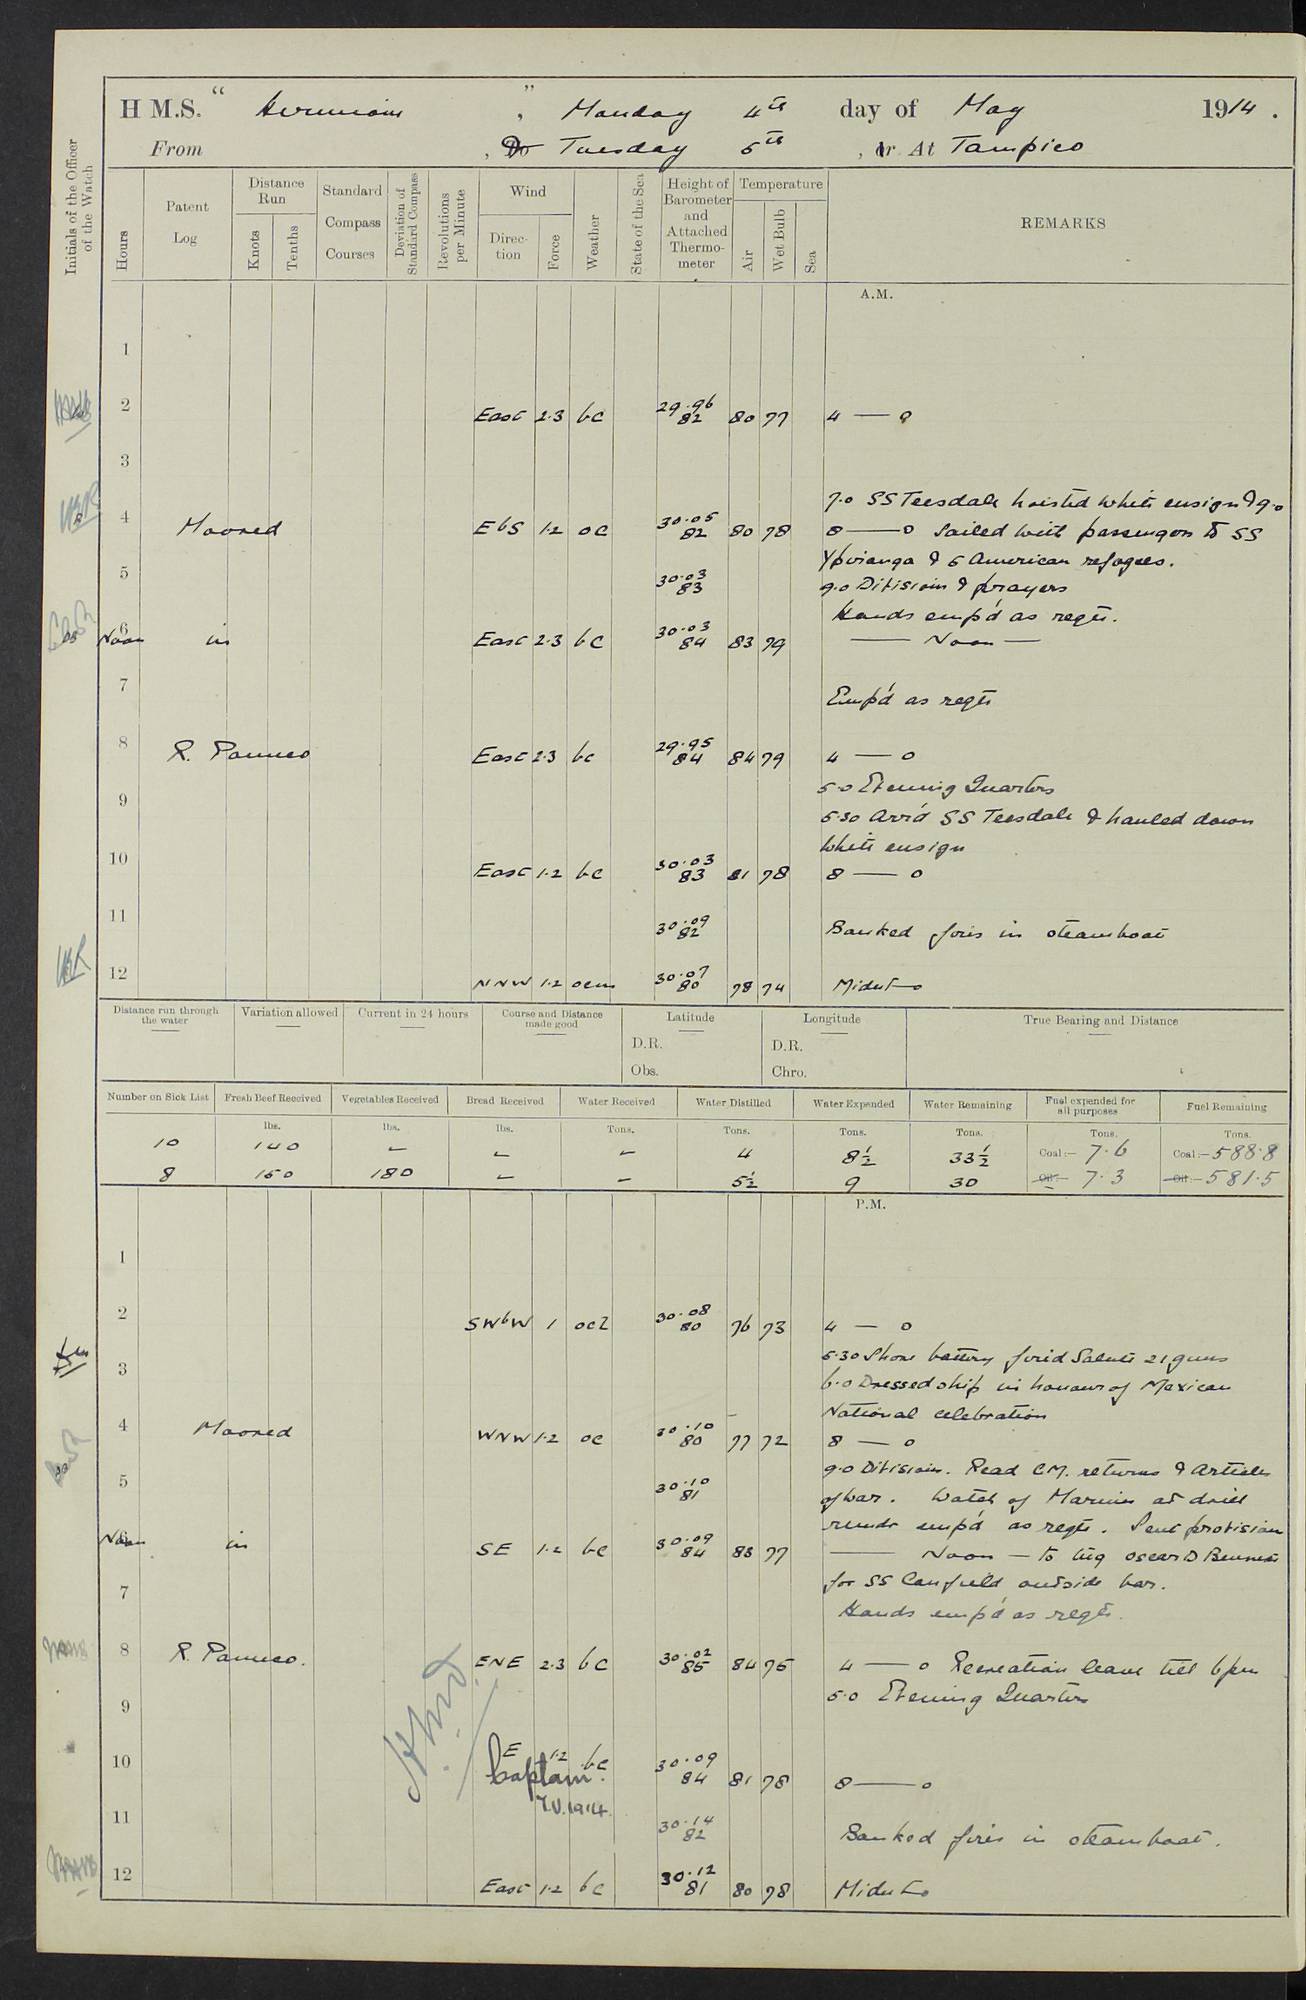 H M.S. “ Hermione ” , Monday 4th day of May 1914 .
From , To Tuesday 5th , or At Tampico
Initials of the Officer of the Watch
Hours
Patent Log
Distance Run
Knots
Tenths
Standard Compass Courses
Deviation of Standard Compass
Revolutions per Minute
Wind
Direction
Force
Weather
State of the Sea
Height of Barometer and Attached Thermometer
Temperature
Air
Wet Bulb
Sea
REMARKS
A.M.
1
2 East 2.3 bc 29.96 82 80 77 4 — 0
3
7.0 SS Teesdale hoisted white ensign & 9.0
4 Moored EbS 1.2 oc 30.05 82 80 78 8 — 0 Sailed with passengers to SS
Ypiranga & 5 American refugees.
5 30.03 83 9.0 Divisions & prayers
Hands emp'd as reqte.
6 Noon in East 2.3 bc 30.03 84 83 79 — Noon —
7 Emp'd as reqte
8 R. Panuco East 2.3 bc 29.95 84 84 79 4 — 0
5.0 Evening Quarters
9 5.30 Arr'd SS Teesdale & hauled down
white ensign
10 East 1.2 bc 30.03 83 81 78 8 — 0
11 30.09 82 Banked fires in steamboat
12 NNW 1.2 ocm 30.07 80 78 74 Midnt
Distance run through the water
Variation allowed
Current in 24 hours
Course and Distance made good
Latitude
D.R.
Obs.
Longitude
D.R.
Chro.
True Bearing and Distance
Number on Sick List Fresh Beef Received Vegetables Received Bread Received Water Received Water Distilled Water Expended Water Remaining Fuel expended for all purposes Fuel Remaining
lbs. lbs. lbs. Tons. Tons. Tons. Tons. Tons. Tons.
10 140 – – – 4 8½ 33½ Coal:– 7.6 Coal:– 588.8
8 150 180 – – 5½ 9 30 Oil:– 7.3 Oil:– 581.5
P.M.
1
2 SWbW 1 ocl 30.08 80 76 73 4 — 0
5.30 Shore battery fired Salute 21 guns
3 6.0 Dressed ship in honour of Mexican
National celebration
4 Moored WNW 1.2 oc 30.10 80 77 72 8 — 0
9.0 Divisions. Read C.M. returns & Articles
5 30.10 81 of War. Watch of Marines at drill
remdr emp'd as reqte. Sent provision
6 Noon in SE 1.2 bc 30.09 84 83 77 — Noon — to tug Oscar D Bennett
for SS Canfield outside bar.
7 Hands emp'd as reqte.
8 R. Panuco. ENE 2.3 bc 30.02 85 84 75 4 — 0 Recreation leave till 6 pm
5.0 Evening Quarters
9
10 E 1.2 bc 30.09 84 81 78 8 — 0
Captain.
7.V.1914.
11 30.14 82 Banked fires in steamboat.
12 East 1.2 bc 30.12 81 80 78 Midnt